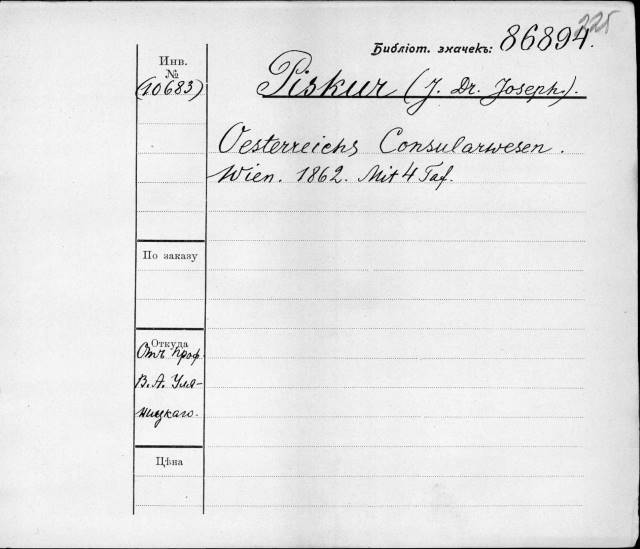 225
Библіот. значекъ: 86894.
Инв.
№
(10683)
Piskur (J. Dr. Joseph.).
Oesterreichs Consularwesen.
Wien. 1862. Mit 4 Taf.
По заказу
Откуда
Отъ проф.
В. А. Уля-
ницкаго.
Цѣна